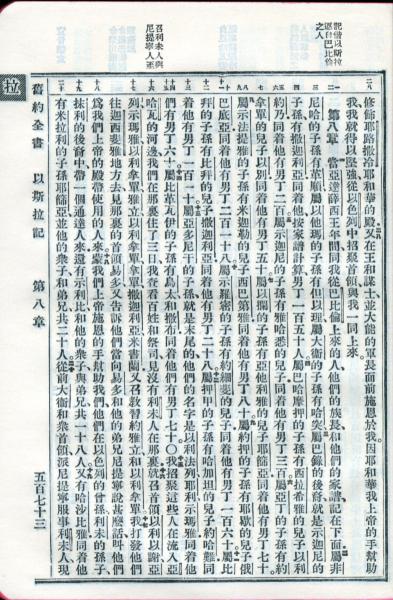 記偕以斯拉
歸自巴比倫
之人
召利未人與
尼提寧人
修飾耶路撒冷耶和華的殿又在王和謀士並大能的軍長面前施恩於我因耶和華我上帝的手幫助
我我就得以堅強從以色列中招聚首領與我一同上來。
第八章 當亞達薛西王年間同我從巴比倫上來的人他們的族長和他們的家譜記在下面屬非
尼哈的子孫有革順屬以他瑪的子孫有但以理屬大衛的子孫有哈突屬巴錄的後裔就是示迦尼的
子孫有撒迦利亞同着他按家譜計算男丁一百五十人屬巴哈摩押的子孫有西拉希雅的兒子以利
約乃同着他有男丁二百屬示迦尼的子孫有雅哈悉的兒子同着他有男丁三百屬亞丁的子孫有約
拿單的兒子以別同着他有男丁五十屬以攔的子孫有亞他利雅的兒子耶篩亞同着他有男丁七十
屬示法提雅的子孫有米迦勒的兒子西巴第雅同着他有男丁八十屬約押的子孫有耶歇的兒子俄
巴底亞同着他有男丁二百一十八屬示羅密的子孫有約細斐的兒子同着他有男丁一百六十屬比
拜的子孫有比拜的兒子撒迦利亞同着他有男丁二十八屬押甲的子孫有哈加坦的兒子約哈難同
着他有男丁一百一十屬亞多尼干的子孫就是末尾的他們的名字是以利法列耶利示瑪雅同着他
們有男丁六十屬比革瓦伊的子孫有烏太和撒布同着他們有男丁七十〇我招聚這些人在流入亞
哈瓦的河邊我們在那裏住了三日我查看百姓和祭司見沒有利未人在那裏就召首領以利以謝亞
列示瑪雅以利拿單雅立以利拿單拿單撒迦利亞米書蘭又召教習約雅立和以利拿單我打發他們
往迦西斐雅地方去見那裏的首領易多又告訴他們當向易多和他的弟兄尼提寧說甚麼話叫他們
爲我們上帝的殿帶使用的人來蒙我們上帝施恩的手幫助我們他們在以色列的曾孫利未的孫子
抹利的後裔中帶一個通達人來還有示利比和他的衆子與弟兄共一十八人又有哈沙比雅同着他
有米拉利的子孫耶篩亞並他的衆子和弟兄共二十人從前大衛和衆首領派尼提寧服事利未人現
舊約全書 以斯拉記 第八章 五百七十三
拉